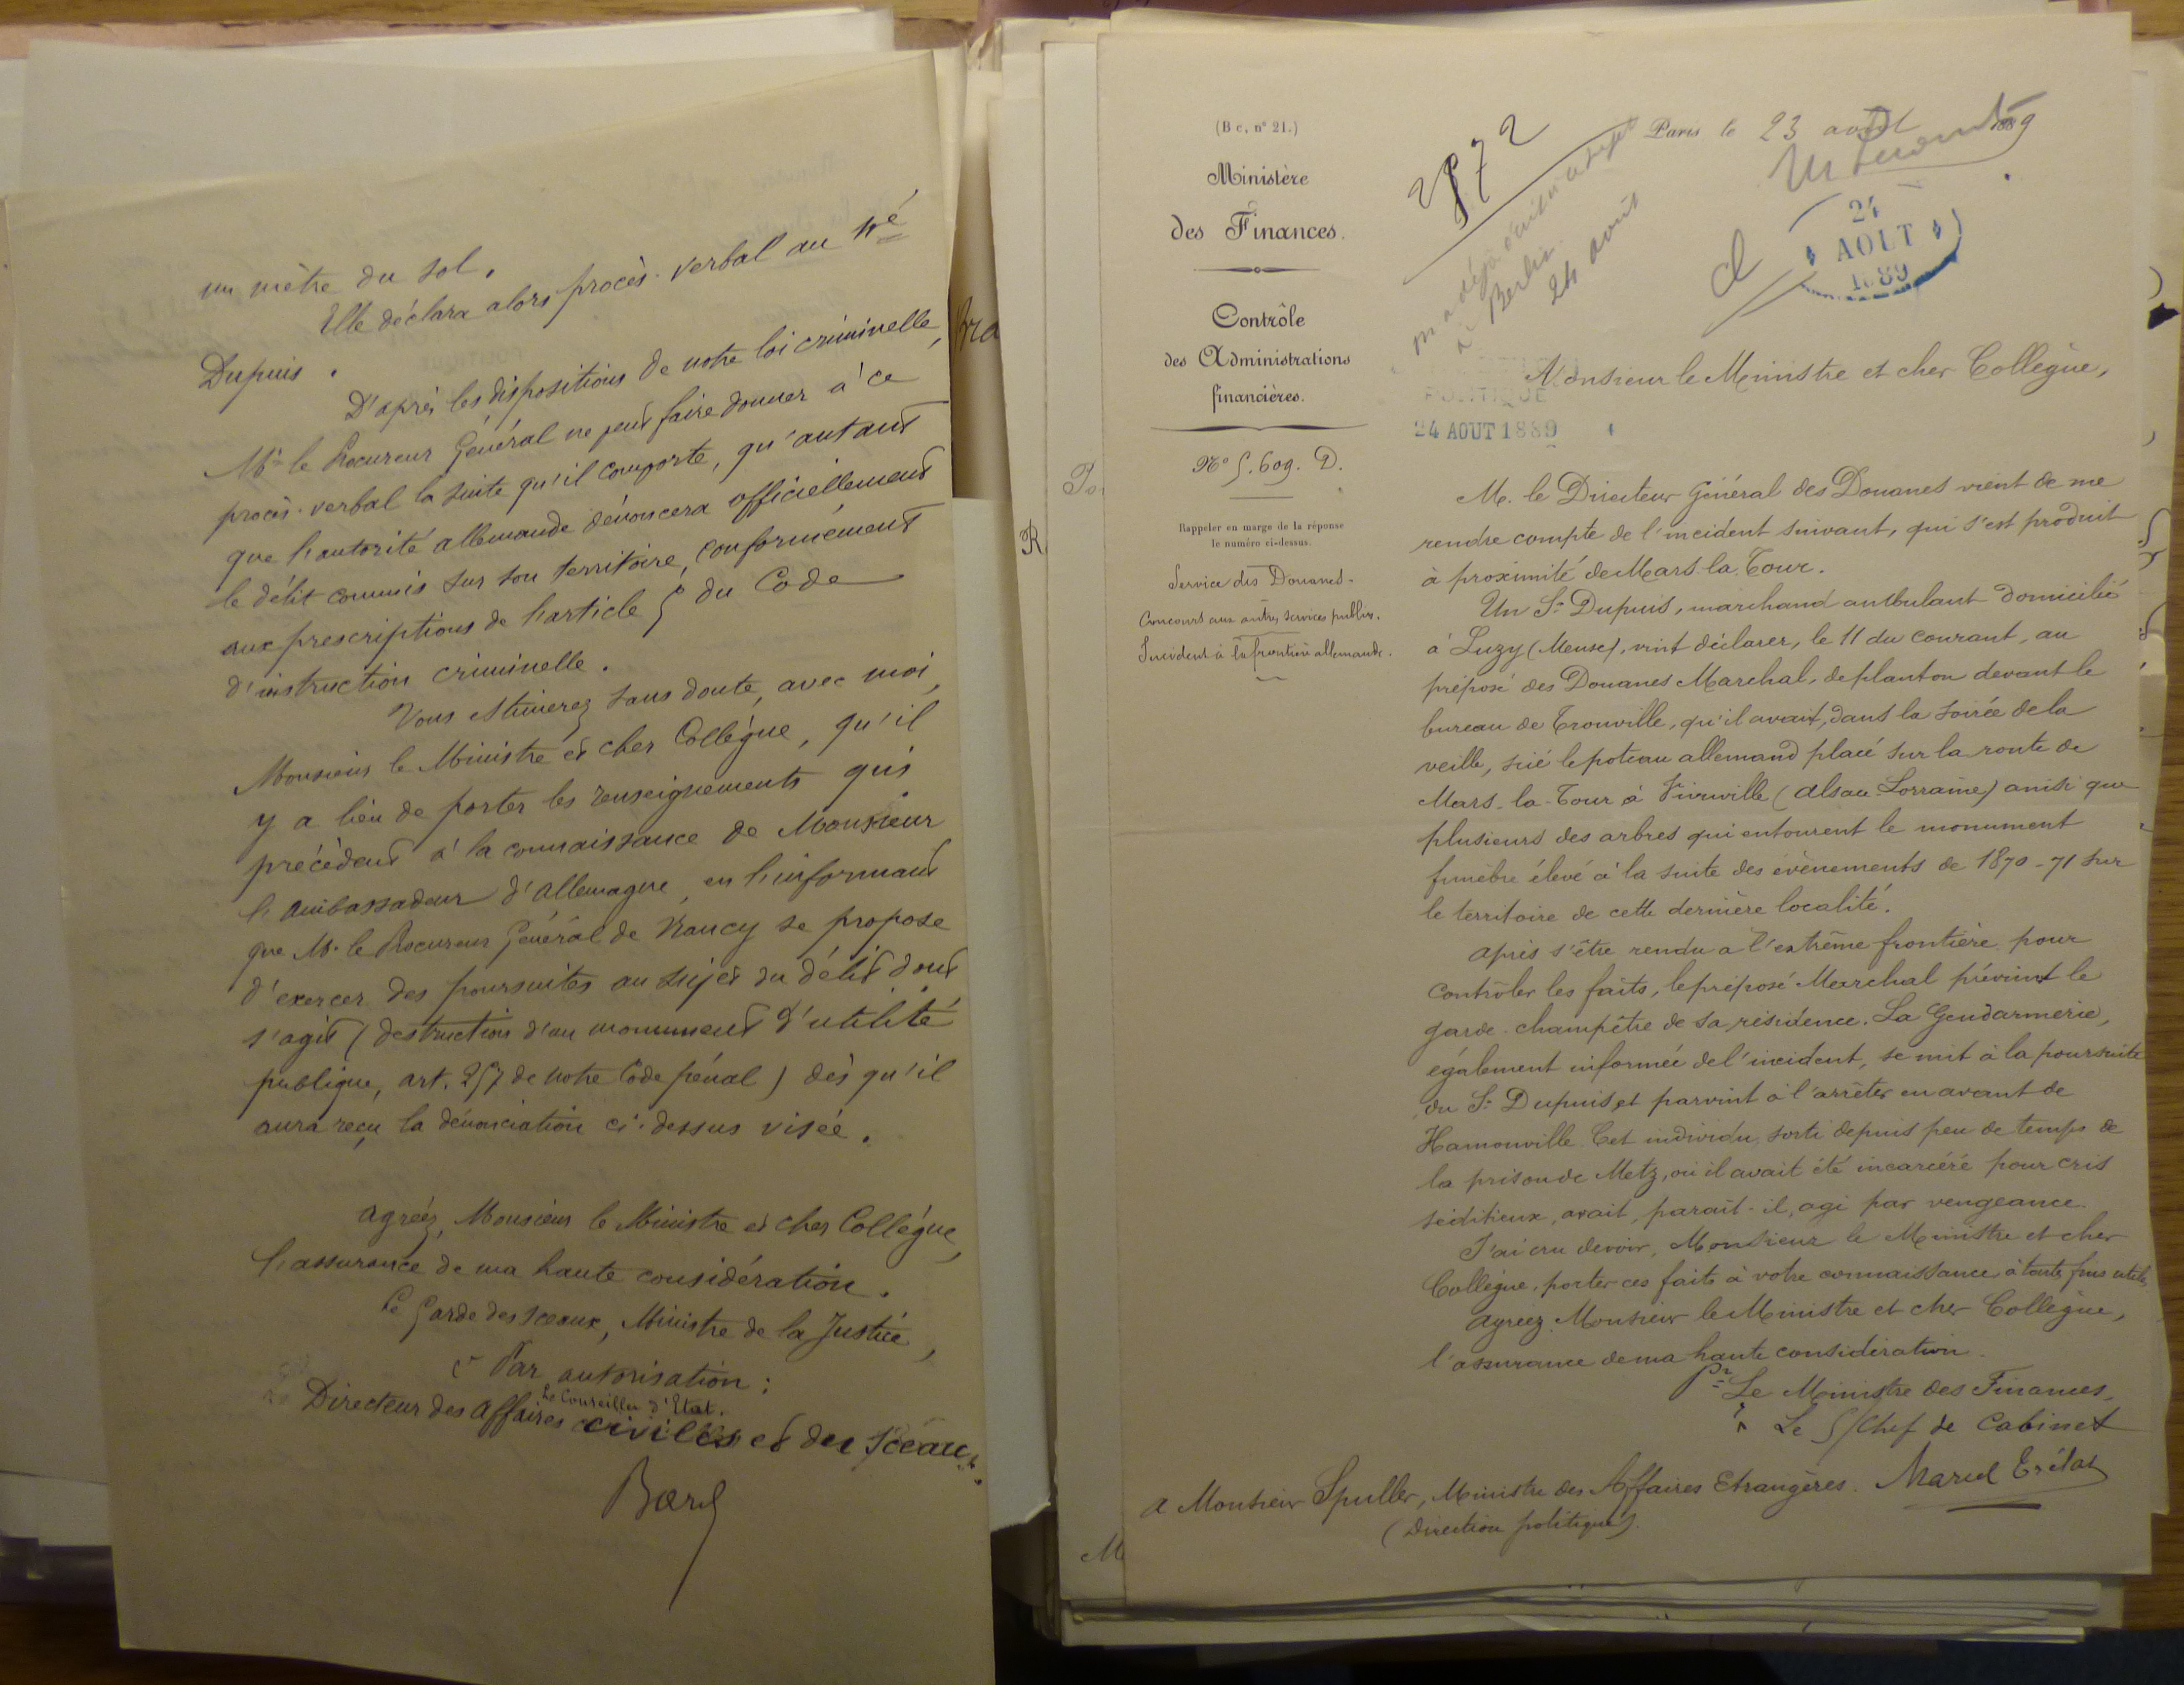 un mètre du sol.
Elle déclara alors procès-verbal au né
Dupuis.
D'après les dispositions de notre loi criminelle,
Mr le Procureur Général ne peut faire donner à ce
procès-verbal la suite qu'il comporte, qu'autant
que l'autorité allemande dénoncera officiellement
le délit commis sur son territoire, conformément
aux prescriptions de l'article 5 du Code
d'instruction criminelle.
Vous estimerez sans doute, avec moi,
Monsieur le Ministre et cher Collègue, qu'il
y a lieu de porter les renseignements qui
précèdent à la connaissance de Monsieur
l'Ambassadeur d'Allemagne, en l'informant
que M. le Procureur Général de Nancy se propose
d'exercer des poursuites au sujet du délit dont
s'agit (destruction d'un monument d'utilité
publique, art. 257 de notre Code pénal) dès qu'il
aura reçu la dénonciation ci-dessus visée.
Agréez, Monsieur le Ministre et cher Collègue,
l'assurance de ma haute considération.
Le Garde des Sceaux, Ministre de la Justice,
Par autorisation :
Le Conseiller d'Etat.
Directeur des Affaires civiles et du Sceau,
Bard
(B c, n° 21.)
Ministère
des Finances.
Contrôle
des Administrations
financières.
N° 5.609. D.
Rappeler en marge de la réponse
le numéro ci-dessus.
Service des Douanes.
Concours aux autres services publics.
Incident à la frontière allemande.
Paris le 23 août 1889
à Berlin.
24 août
24
AOUT
1889
POLITIQUE
24 AOUT 1889
Monsieur le Ministre et cher Collègue,
M. le Directeur Général des Douanes vient de me
rendre compte de l'incident suivant, qui s'est produit
à proximité de Mars-la-Tour.
Un Sr Dupuis, marchand ambulant domicilié
à Luzy (Meuse), vint déclarer, le 11 du courant, au
préposé des Douanes Marchal, de planton devant le
bureau de Tronville, qu'il avait, dans la soirée de la
veille, scié le poteau allemand placé sur la route de
Mars-la-Tour à Vionville (Alsace-Lorraine) ainsi que
plusieurs des arbres qui entourent le monument
funèbre élevé à la suite des évènements de 1870-71 sur
le territoire de cette dernière localité.
Après s'être rendu à l'extrême frontière pour
contrôler les faits, le préposé Marchal prévint le
garde-champêtre de sa résidence. La Gendarmerie,
également informée de l'incident, se mit à la poursuite
du Sr Dupuis et parvint à l'arrêter en avant de
Hamonville. Cet individu, sorti depuis peu de temps de
la prison de Metz, où il avait été incarcéré pour cris
séditieux, avait, paraît-il, agi par vengeance.
J'ai cru devoir, Monsieur le Ministre et cher
Collègue, porter ces faits à votre connaissance à toutes fins utiles.
Agréez Monsieur le Ministre et cher Collègue,
l'assurance de ma haute considération.
Pr Le Ministre des Finances,
Le S/Chef de Cabinet
A Monsieur Spuller, Ministre des Affaires Etrangères.
(Direction politique)